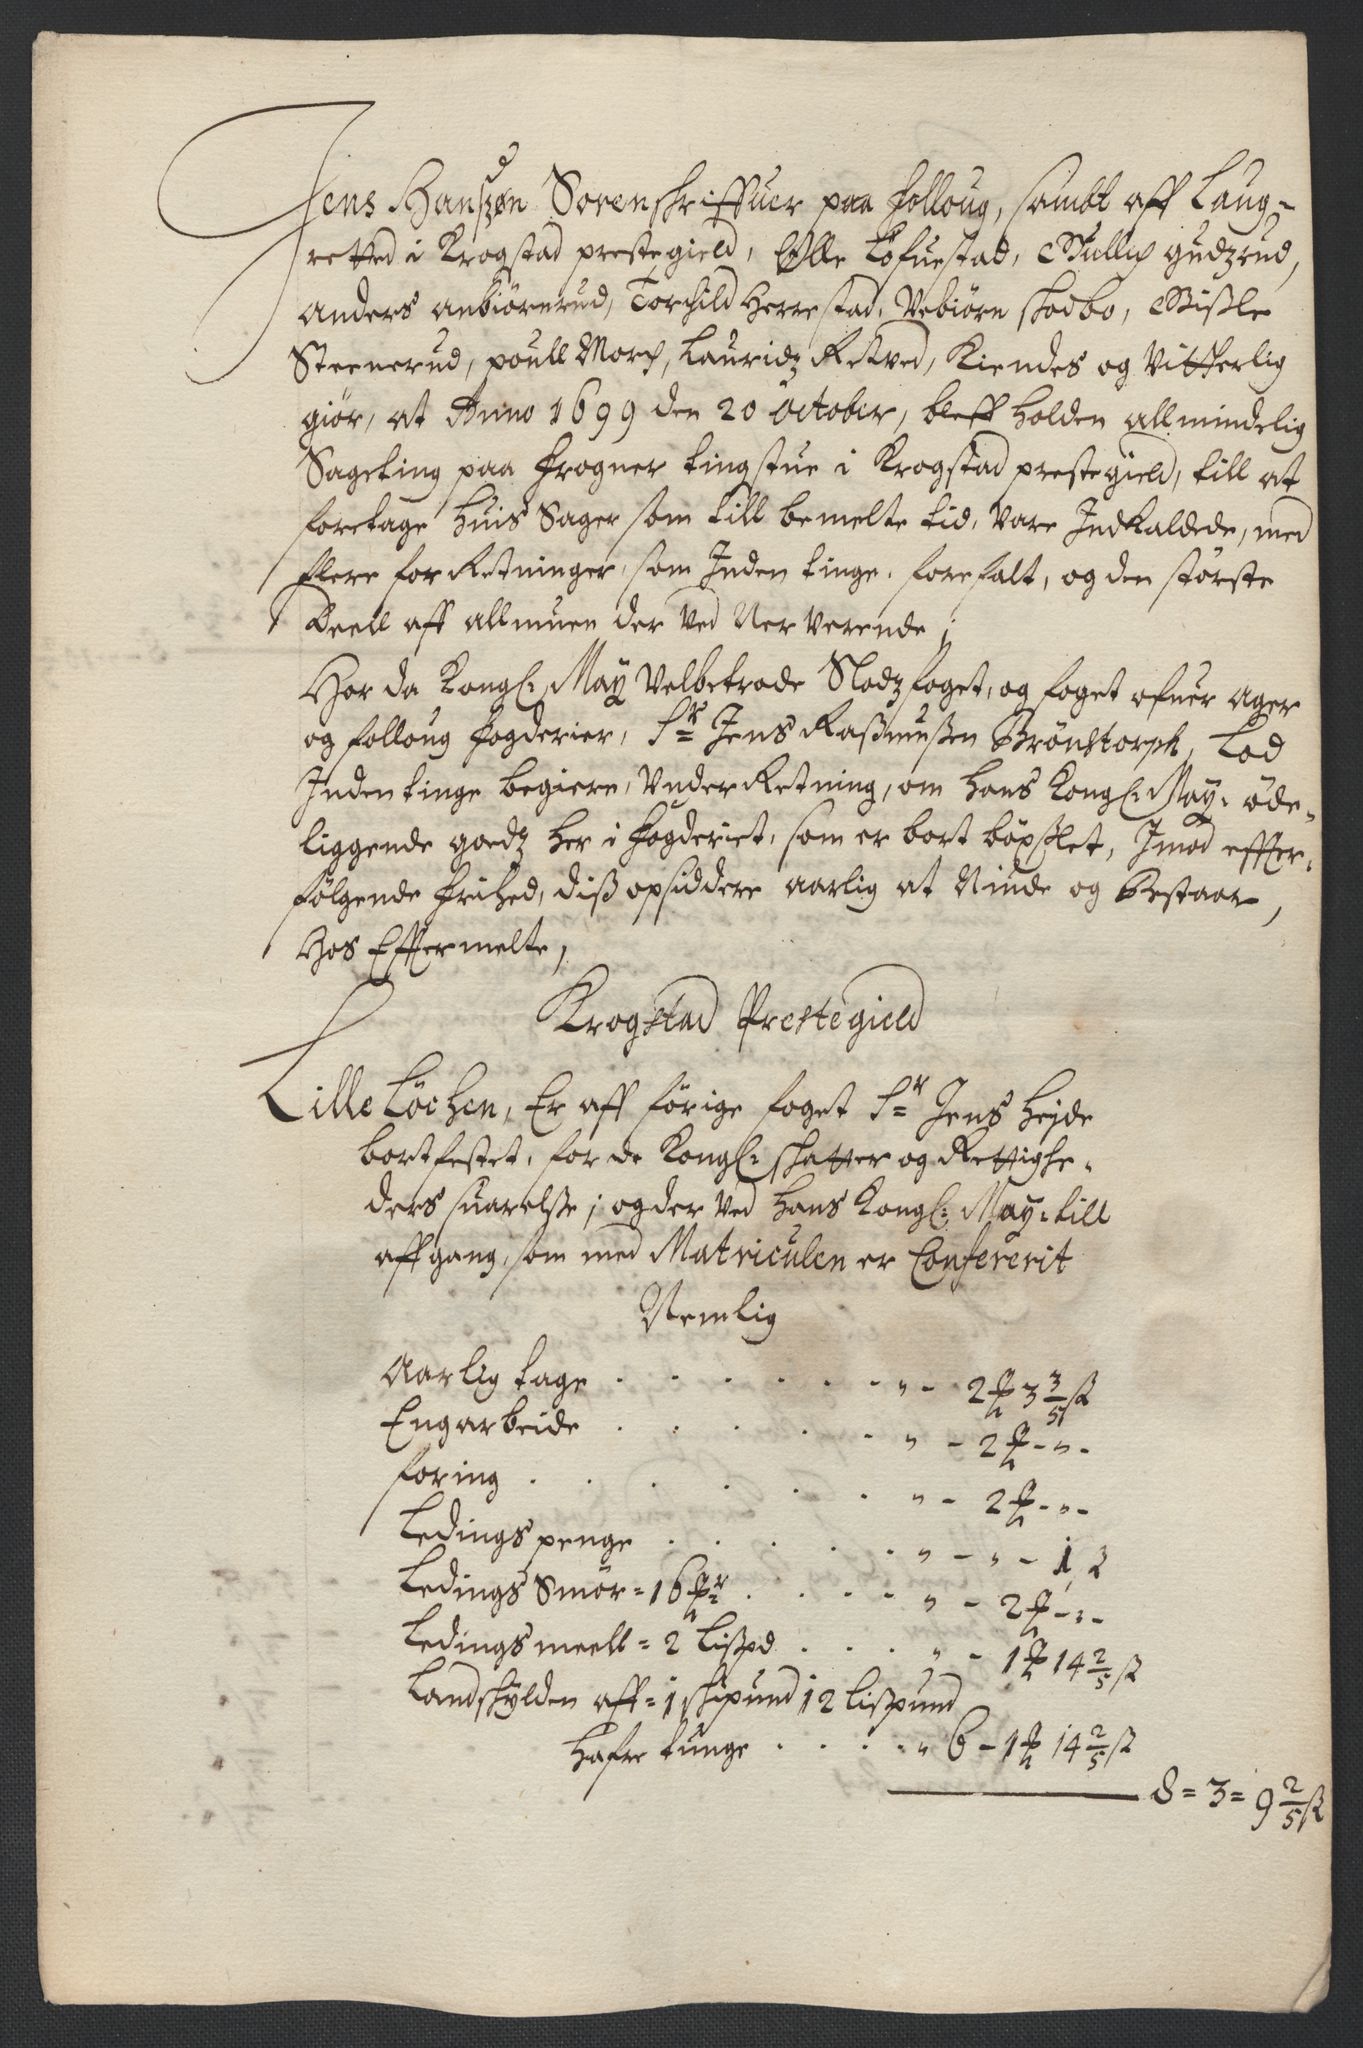 Jens Hanszøn Sorenskriffuer paa Folloug, sambt aff Laug-
retted i Krogstad prestegield, Olle Löfuestad, Gullich gudzrud,
Anders anbiörnrud, Torchild Herrestad, Vebiörn skodbo, Gißle
Steenerud, poull Morch, Lauridz Retved, Kiendes og Vitterlig
giør, at Anno 1699 den 20 October, bleff holden allmindelig
Sageting paa frogner tingstue i Krogstad prestegield, till at
foretage huis Sager som till bemelte tid, vare Indkaldede, med
flere forRetninger, som Inden tinge, forefalt, og den störste
Deell aff allmuen der ved Nerverende,
Hvor da Kongl: May Velbetrode Slodzfoget, og foget ofuer Ager
og folloug fogderier, Sr Jens Raßmußen Brönstorph, Lod
Inden tinge begiere, Vnder Retning, om Hans Kongl: May: øde-
liggende godz her i fogderiet, som er bort böxslet, Imod effter-
fölgende frihed, diß opsiddere aarlig at Niude og Bestaar,
Hos Effter melte,
Krogstad Prestegield
Lille Löchen, Er aff forige foget Sr Jens Heyde
bortfestet, for de Kongl: skatter og Rettighe-
ders suarelße, og der ved Hans Kongl: May: till
affgang, som med Matriculen er Confererit
Nemlig
Aarlig tage . . . . . . " - 2 ₰ 3 3/5 ß
Engarbeide . . . . . " - 2 ₰ - " -
foring . . . . . . . " - 2 ₰ - " -
Ledings penge . . . . . " - " - 1 ß
Ledings Smör = 16 mr . . . . " - 2 ₰ - " -
Ledings meell = 2 Lißpd . . . " - 1 ₰ 14 2/5 ß
Landskylden aff = 1 skipund 12 Lißpund
Hafre tunge . . . . " 6 - 1 ₰ 14 2/5 ß
8 = 3 = 9 2/5 ß